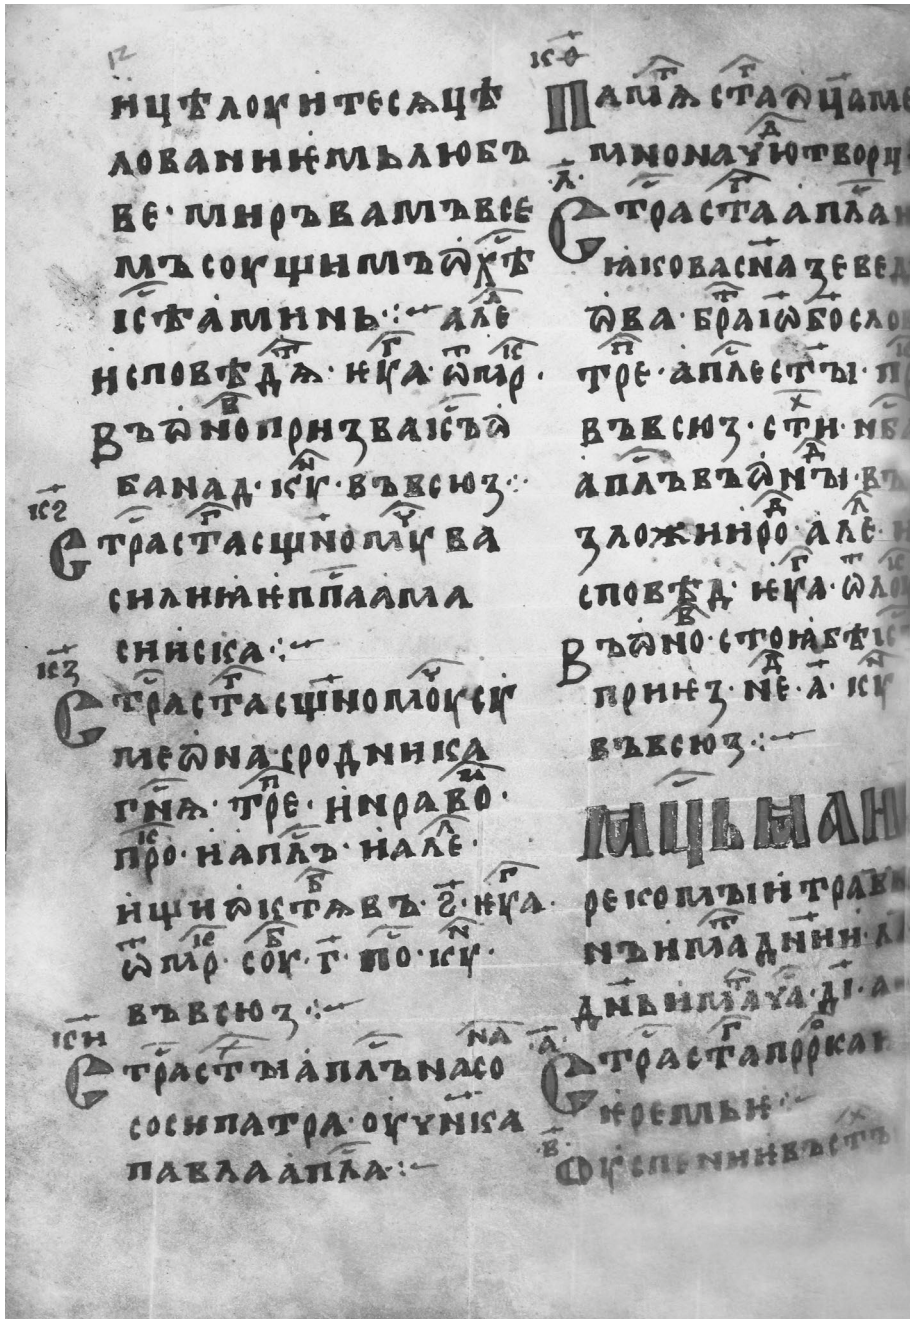 и цѣлоуитесѧ цѣ
лованиѥмь любъ
ве · миръ вамъ все
мъ соущимъ ѡ х҃ѣ
іс҃ѣ аминь ·:· але҃
исповѣдⷮѧ · ѥѵⷢ҇а · ѿ мрⷦ҇ ·
въ ѡноⷡ призва іс҃ъ ѡ
ба на д · кѹⷩ҇ · въ всю з ·:·
к҃ѕ
Стрⷭ҇а сⷢ҇таⷢ сщ҃номѹⷱ҇ ва
силиꙗ ѥпⷭ҇па ама
сииска ·:·
к҃з
Стрⷭ҇а сⷢ҇таⷢ сщ҃номоѹⷱ҇ су
меѡна · сродника
гн҃ѧ · трⷫ҇е · и нравоⷨ ·
проⷦ҇ · и апⷭ҇лъ · и алеⷧ ·
ищи ѡкⷮтѧⷠ въ · ѕ҃ · ѥѵⷢ҇а ·
ѿ мрⷦ҇ · соуⷠ · г҃ · поⷭ · кѹⷩ҇ ·
въ всю з ·:·
к҃и
Стрⷭ҇а стⷯ҇ы апⷭ҇лъ насо на
сосипатра · оучн҃ка
павла апⷭ҇ла ·:·
к҃ѳ
Памⷮѧ сⷢ҇таⷢ ѡц҃а ме
мнонаⷣ чюютвор
л҃
Стрⷭ҇а сⷢ҇таⷢ апⷭ҇ла
ꙗкова сн҃а зевед
ѡва · браⷮ іѡ҃ бо҃сло
трⷫ҇е · апⷭ҇ле ст҃ы ·
въ всю з · стиⷯ ·
апⷭ҇лъ въ ѡⷣны ·
зложи ироⷣ · алеⷧ ·
сповѣⷣ · ѥѵⷢ҇а · ѿ
въ ѡноⷡ · стоꙗ бѣ
приѥз · неⷣ · а҃ · кѹⷩ҇
въ всю з ·:·
Мцⷭ҇ь маи
рекомыи трав
нъ имⷮа дн҃ии ·
дн҃ь имⷮа чⷭ҇а · д҃і · а
а҃
Стрⷭ҇а сⷢ҇таⷢ прⷪ҇рка
ѥремьѥ ·:·
в҃
Оуспениѥ въ стⷯ҇